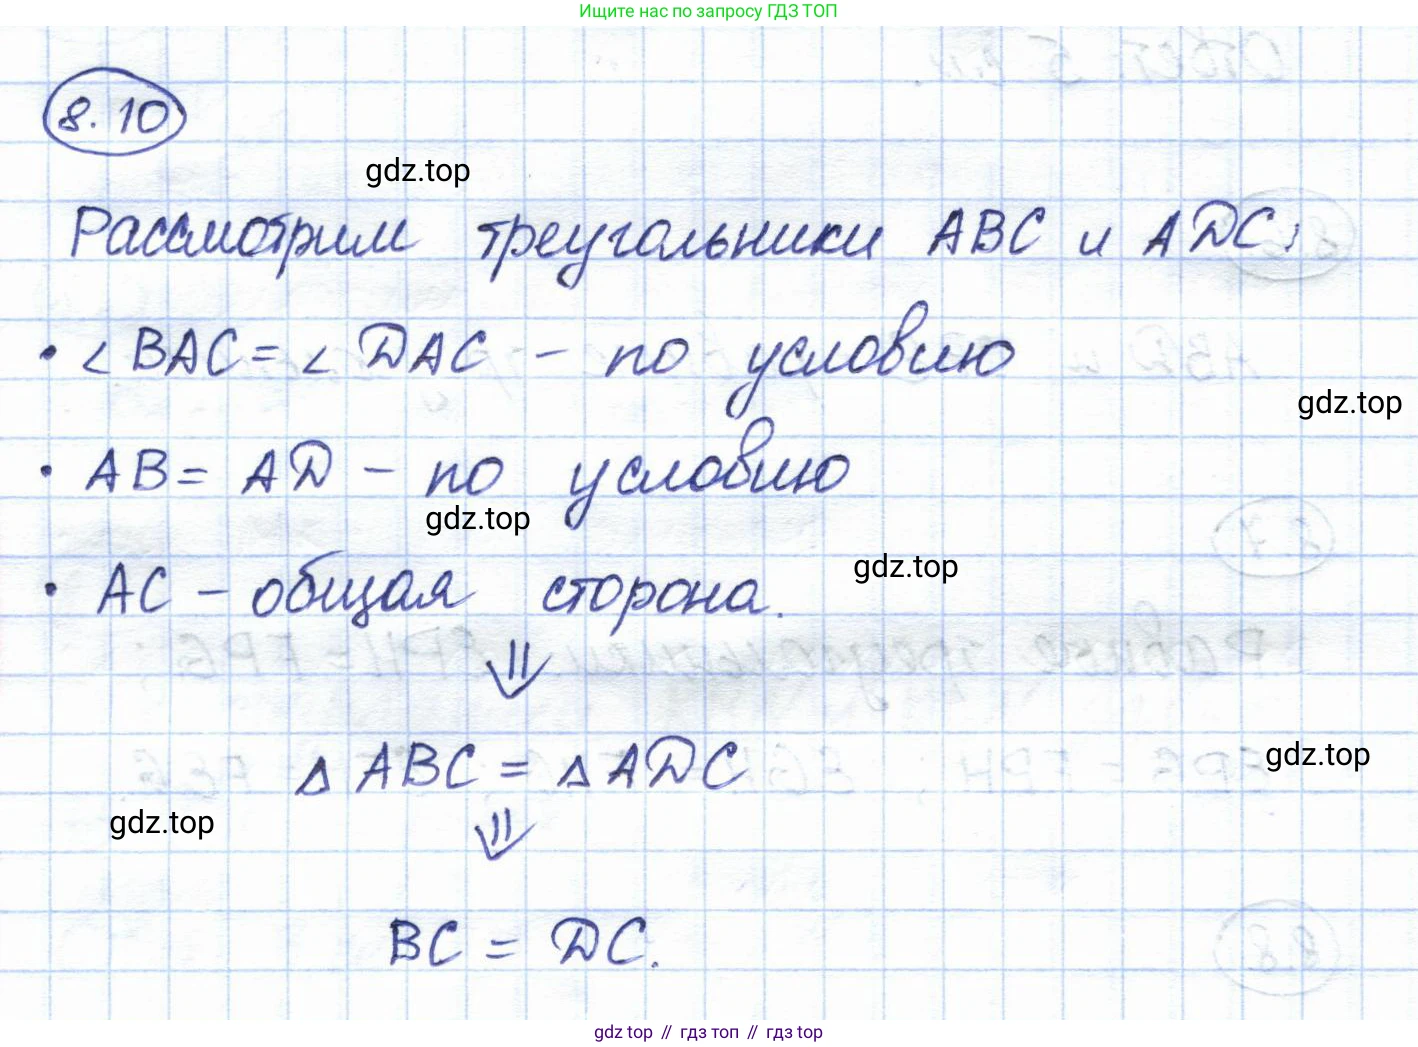 Ищите нас по запросу ГДЗ ТОП
8.10
gdz.top
Рассмотрим треугольники ABC и ADC:
• ∠ BAC = ∠ DAC – по условию
gdz.top
• AB = AD – по условию
gdz.top
gdz.top
• AC – общая сторона.
⇓
Δ ABC = Δ ADC
gdz.top
gdz.top
⇓
BC = DC.
gdz top // гдз топ // гдз top